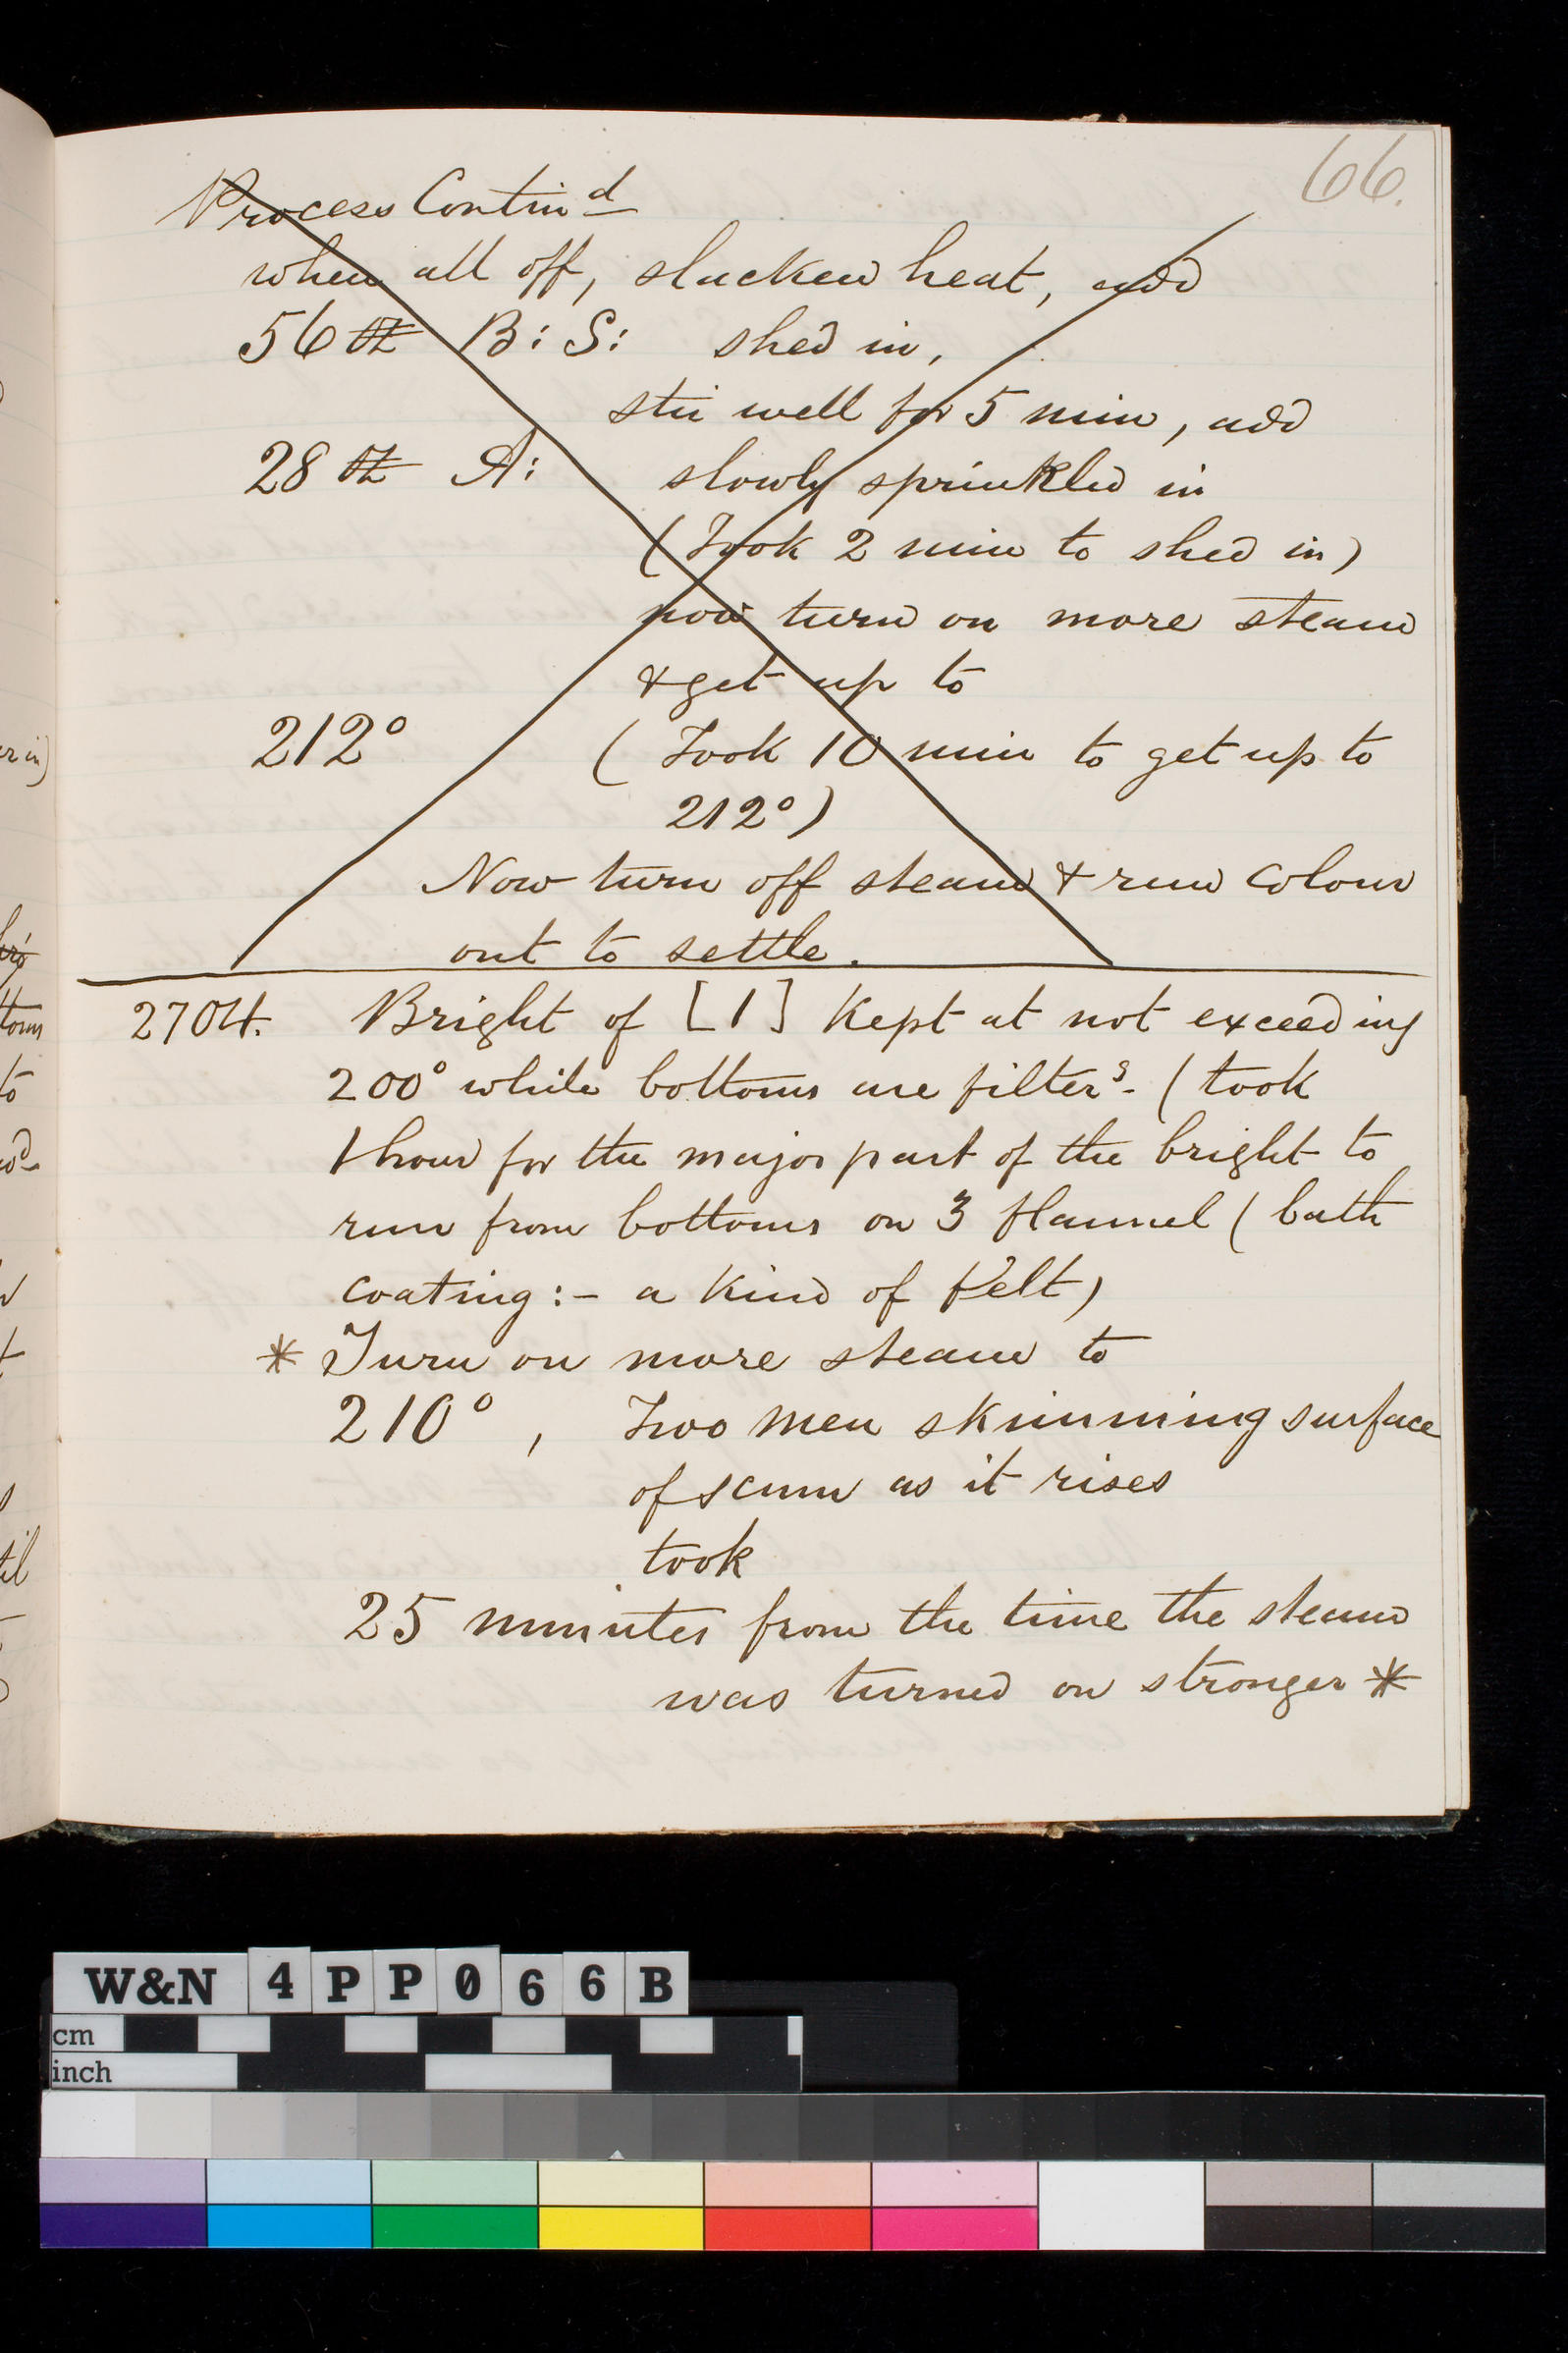 66.
Process Contin d
when all off, slacken heat, add
56 oz B: S: shed in,
stir well for 5 min, add
28 oz A: slowly sprinkled in
(Took 2 min to shed in)
now turn on more steam
& get up to
212° ( Took 10 min to get up to
212°)
Now turn off steam & run colour
out to settle.
2704. Bright of [1] Kept at not exceeding
200° while bottoms are filter g- ( took
1 hour for the major part of the bright to
run from bottoms on 3 flannel ( bath
coating :- a kind of Felt)
* Turn on more steam to
210° , Two men skimming surface
of scum as it rises
took
25 minutes from the time the steam
was turned on stronger *
W&N 4PP066B
cm
inch